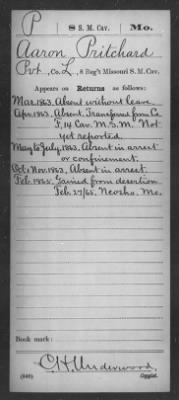 P 8 S. M. Cav. Mo.
Aaron Pritchard
Pvt, Co. L, 8 Reg't Missouri S. M. Cav.
Appears on Returns as follows:
Mar. 1863, Absent without leave
Apr. 1863, Absent. Transferred from Co
F, 14 Cav. M.S.M. Not
yet reported.
May to July, 1863, Absent in arrest
or confinement.
Oct., Nov. 1863, Absent in arrest.
Feb. 1865, Gained from desertion
Feb. 27/65. Neosho. Mo.
Book mark:
C.H. Underwood.
(546) Copyist.